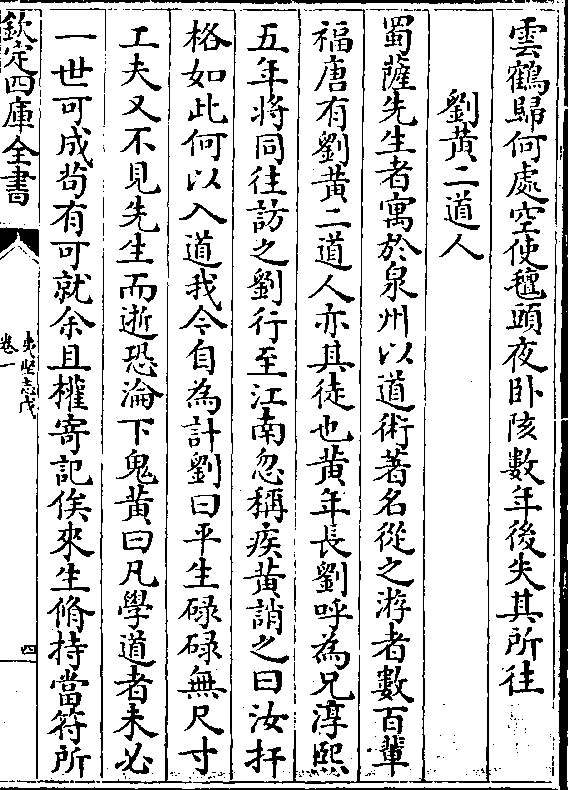 雲鶴歸何處空使氊頭夜卧陔數年後失其所往
劉黃二道人
蜀薩先生者寓於泉州以道術著名從之游者數百輩
福唐有劉黃二道人亦其徒也黃年長劉呼為兄淳熙
五年將同往訪之劉行至江南忽稱疾黃誚之曰汝扞
格如此何以入道我令自為計劉曰平生碌碌無尺寸
工夫又不見先生而逝恐淪下鬼黃曰凡學道者未必
一世可成茍有可就余且權寄記俟來生脩持當符所
欽定四庫全書
夷堅志戊
卷一
四